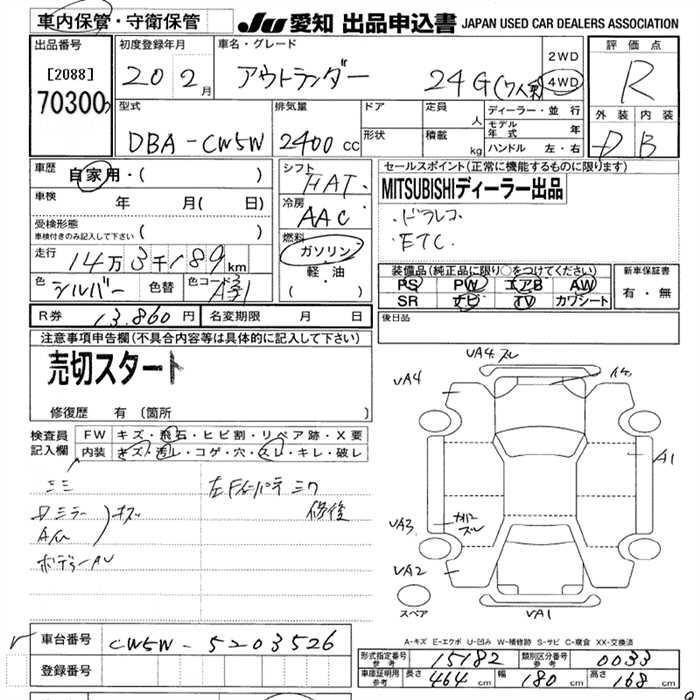 車内保管・守衛保管 JU 愛知 出品申込書 JAPAN USED CAR DEALERS ASSOCIATION
出品番号 初度登録年月 車名・グレード 評価点
[2088] 20 2月 アウトランダー 24G(7人乗 2WD 4WD R
70300
型式 排気量 ドア 定員 人 ディーラー・並行 外装 内装
DBA-CW5W 2400cc 形状 積載 kg モデル年式 年 D B
ハンドル 左・右
車歴 自家用・( ) シフト FAT セールスポイント(正常に機能するものに限ります)
車検 年 月( 日) 冷房 AAC MITSUBISHIディーラー出品
受検形態 車検付きのみ記入して下さい ( ) ・ドラレコ
燃料 ガソリン ・ETC
走行 14万3千189km 軽・油 ( )
色 シルバー 色替 色コード A31
装備品(純正品に限り○をつけてください) 新車保証書
PS PW エアB AW 有・無
SR ナビ TV カワシート
R券 13,860円 名変期限 月 日 後日品
注意事項申告欄(不具合内容等は具体的に記入して下さい)
売切スタート
修復歴 有 (箇所 )
検査員記入欄 FW キズ・飛石・ヒビ割・リペア跡・X要
内装 キズ・汚レ・コゲ・穴・スレ・キレ・破レ
キズ
修復
VA4 スレ
VA4
A1
VA3
スレ
VA2
スペア VA1
A-キズ E-エクボ U-凹み W-補修跡 S-サビ C-腐食 XX-交換済
車台番号 CW5W-5203526
登録番号
形式指定番号 参考 15182 類別区分番号 参考 0033
車庫証明用 参考 長さ 464cm 幅 180cm 高さ 168cm